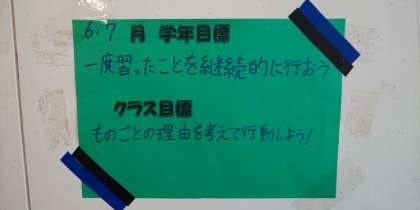 6・7月 学年目標
一度習ったことを継続的に行おう
クラス目標
ものごとの理由を考えて行動しよう!